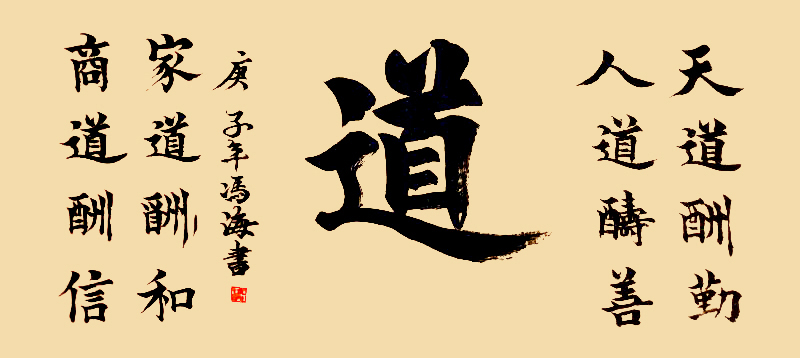 天道酬勤
人道醻善
道
庚子年馮海書
家道酬和
商道酬信